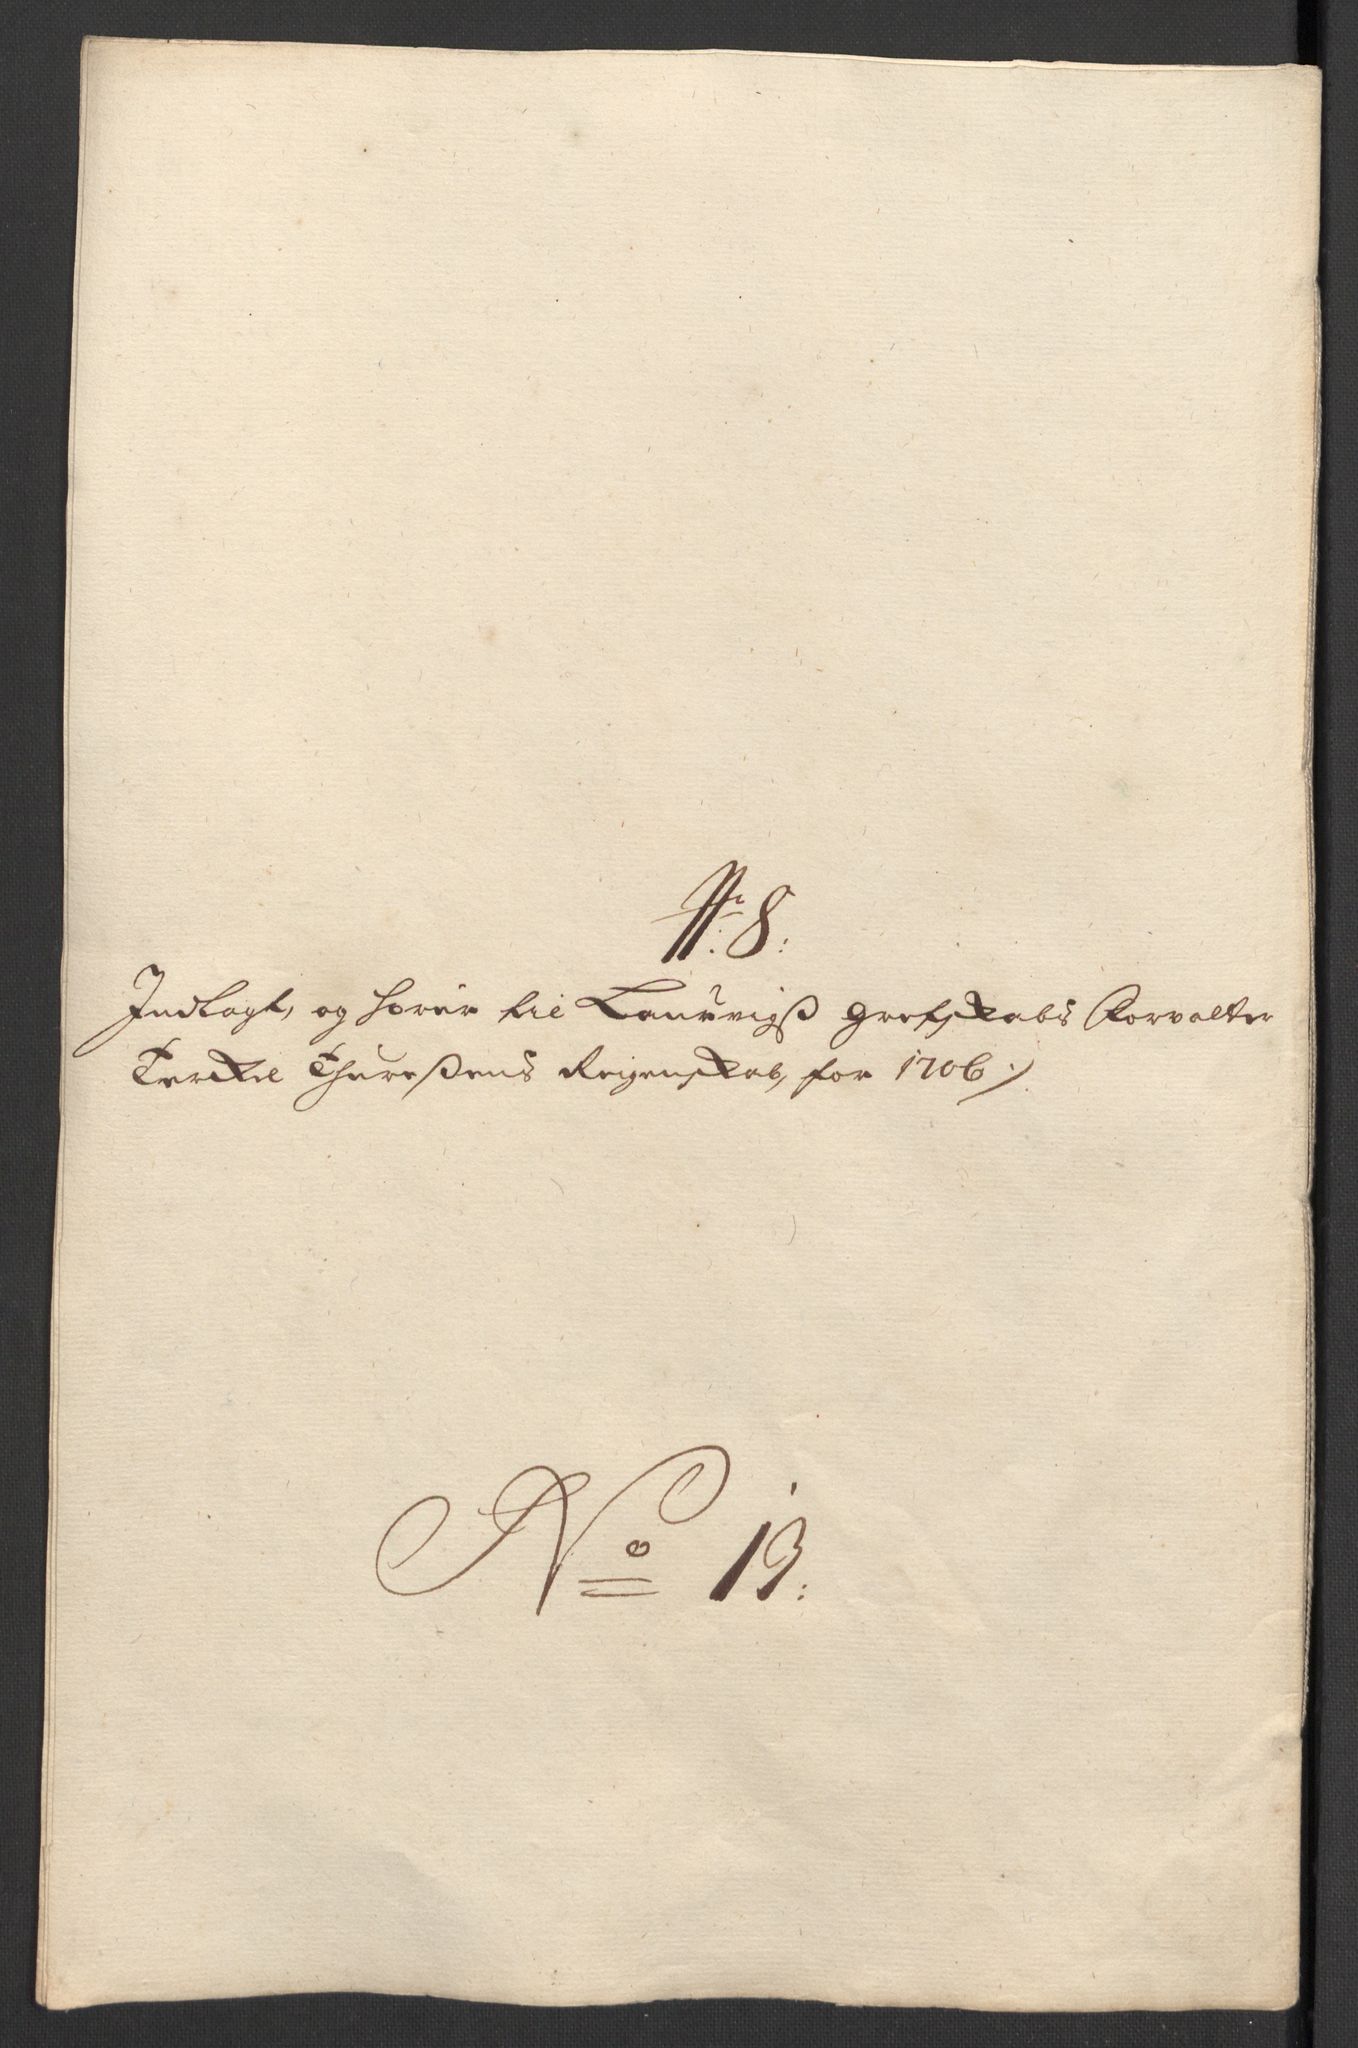 N: 8:
Indlagt, og hører til Laurvigß Grefskabs Forvalter
Terkel Thureßens Reigenskab, for 1706 ./
No 13: